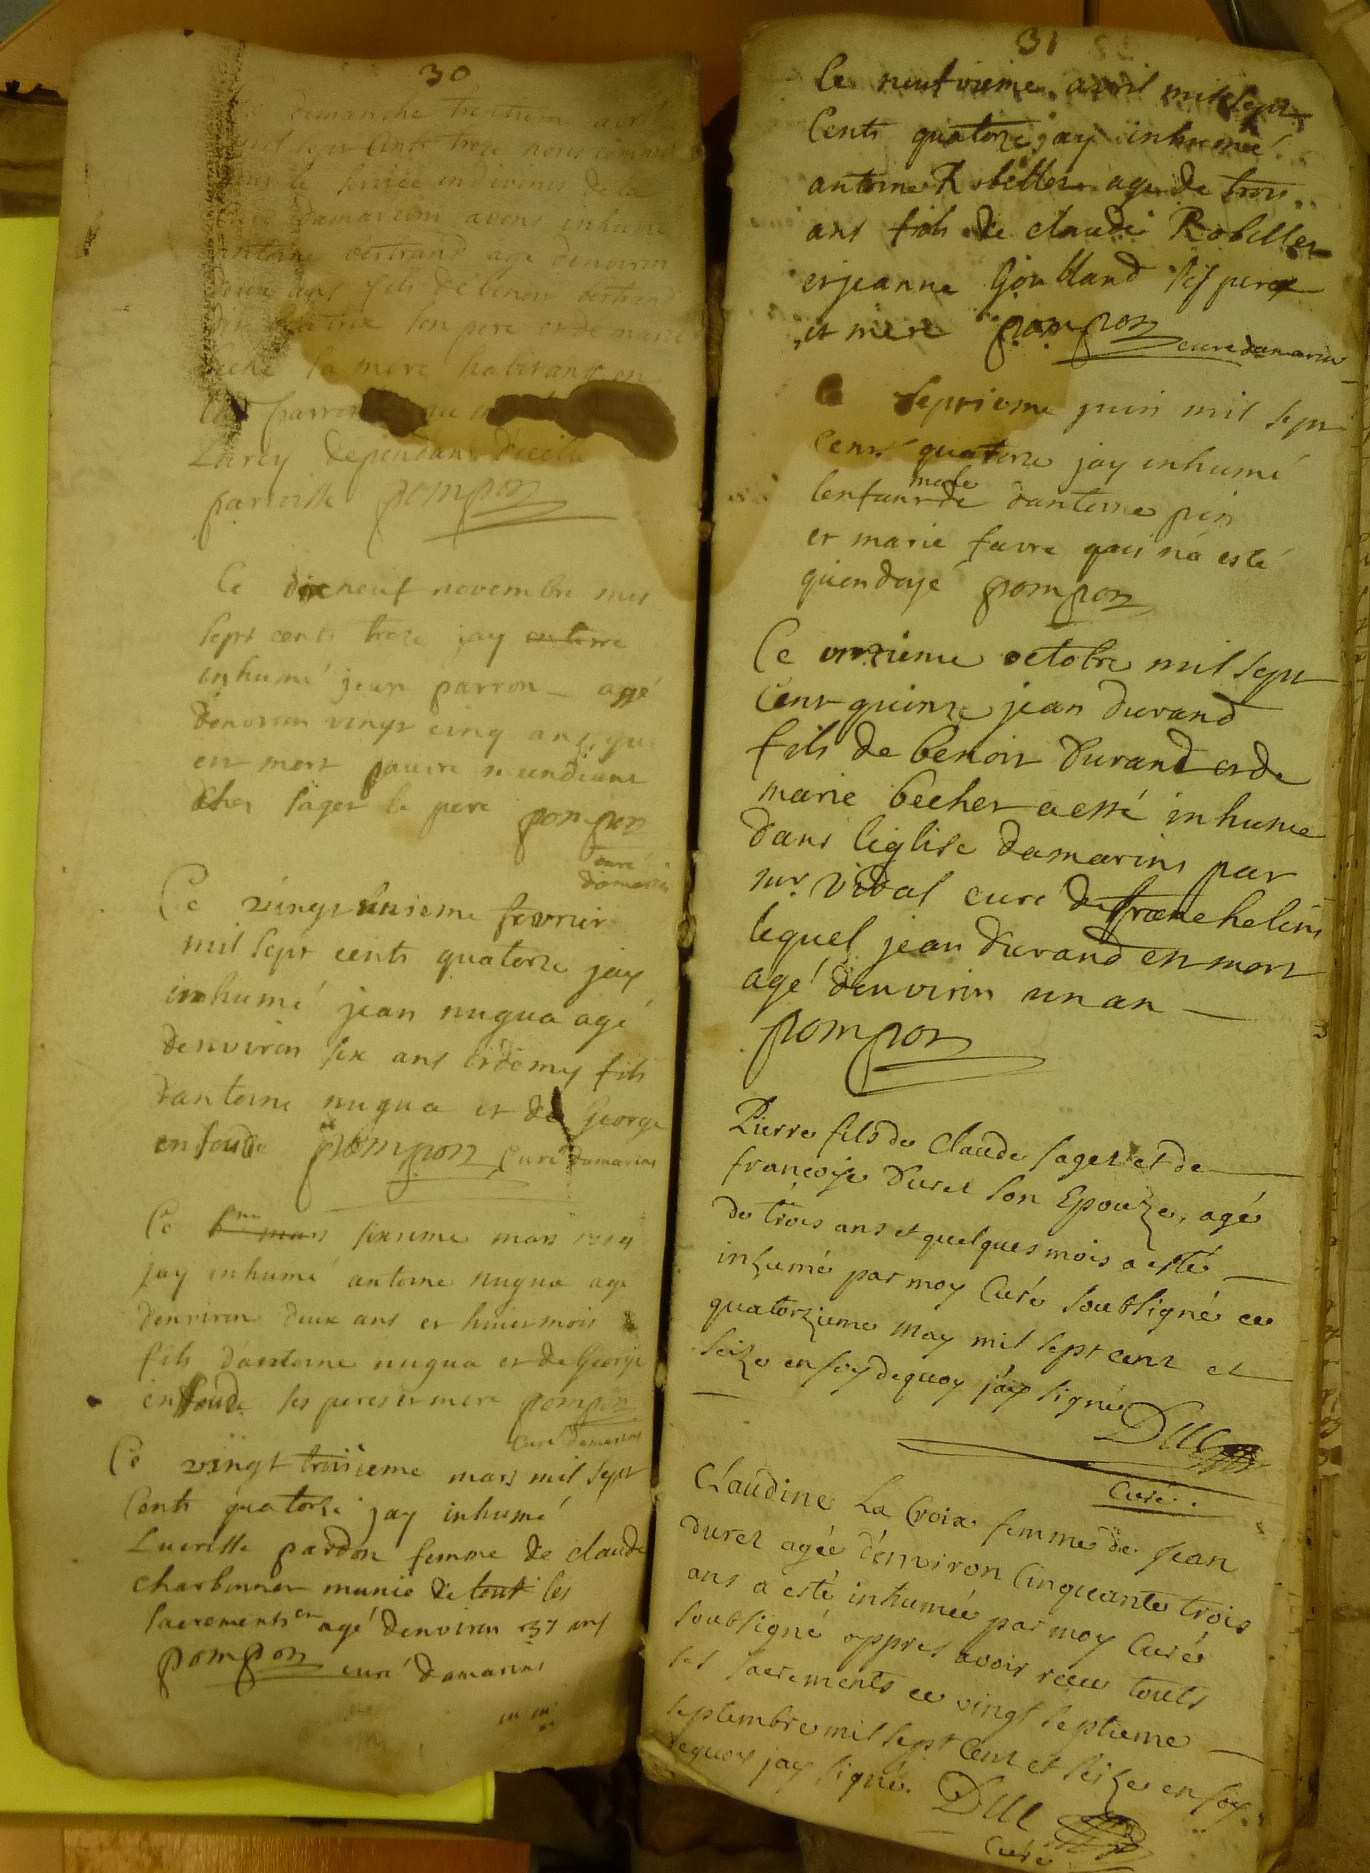 30
dimanche
cents treze
damarins avons inhumé
antoine bertrand agé denviron
ans fils de benoit bertrand
son pere et de marie
la mere habitans en
parroisse
Larcy dependant dicelle
parroisse pompon
Ce dixneuf novembre mil
sept cents treze jay enterre
inhumé jean parron agé
denviron vingt cinq ans qui
est mort pauvre mendiant
ches sager le pere pompon
curé
damarins
Ce vingt unieme fevrier
mil sept cents quatorze jay
inhumé jean nugua agé
denviron six ans et demy fils
dantoine nugua et de George
enfoude pompon curé damarins
Ce sixieme mars
jay inhumé antoine nugua age
denviron deux ans et huict mois
fils dantoine nugua et de George
enfoude ses peres et mere pompon
curé damarins
Ce vingt troisieme mars mil sept
Cents quatorze jay inhumé
pardon femme de claude
charbonner munie de tout les
sacrements et agé denviron 37 ans
pompon curé damarins
31
Ce neufvieme avril mil sept
Cents quatorze jay inhumé
antoine Robellet age de trois
ans fils de claude Robellet
et jeanne Goulland ses peres
et mere pompon curé damarins
Ce septieme juin mil sept
cens quatorze jay inhumé
male
lenfant de dantoine pin
et marie favre qui na esté
quondoyé pompon
Ce onzieme octobre mil sept
Cent quinze jean durand
fils de benoit durand et de
marie becher a esté inhume
dans leglise damarins par
mr. vidal curé de franchelins
lequel jean durand est mort
agé denviron un an
pompon
Pierre fils de Claude sager et de
françoise Duret son Epouze, agé
de trois ans et quelques mois a esté
inhumé par moy Curé soubsigné ce
quatorzieme may mil sept cent et
seize en foy de quoy jay signé
Duc
Curé
Claudine La Croix femme de Jean
duret agée d'environ Cinquante trois
ans a esté inhumée par moy Curé
soubsigné appres avoir receu touts
les sacrements ce vingt septieme
septembre mil sept Cent et seize en foy
dequoy jay signé. Duc
Curé